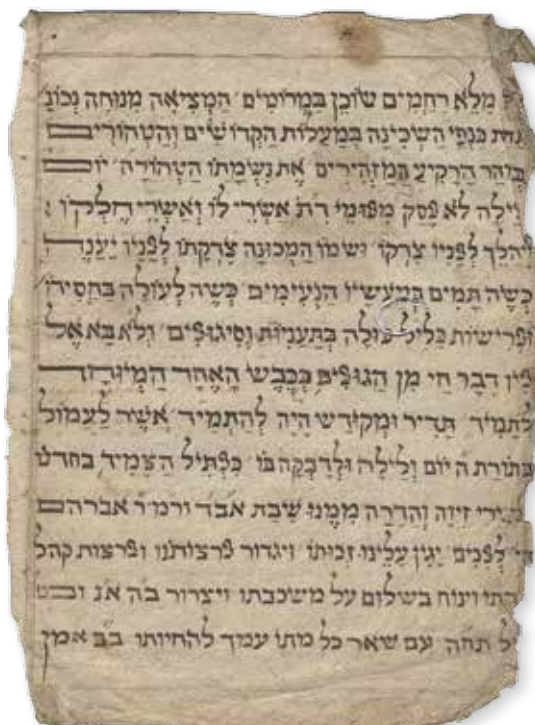 מלא רחמים שוכן במרומים המציאה מנוחה נכונ
תחת כנפי השכינה במעלות הקדושים והטהורים
כזוהר הרקיע המזהירים את נשמתו הטהורה יום
ולילה לא פסק מפומי׳ דת אשרי לו ואשרי חלקו :
והלך לפניו צדקו ושמו המכונה צדקתו לפניו יענה
כשה תמים במעשיו הנעימים כשה לעולה בחסידו
ופרישות כליל עולה בתעניות וסיגופים ולא בא אל
פיו דבר חי מן הגופים ככבש האחד המיוחד
לתמיד תדיר ומקודש היה להתמיד אשר לעמול
בתורת ה׳ יום ולילה ולדבקה בו כפתיל הצמיד בחדש
זיוה והדרה ממנו שיבת אב״ד ורמ״ר אברהם
לפנים יגין עלינו זכותו ויגדור פרצותנו ופרצות קהל
וינוח בשלום על משכבתו ויצרור בה א״נ
תחה עם שאר כל מתי עמך להחיותו ב״ב אמן